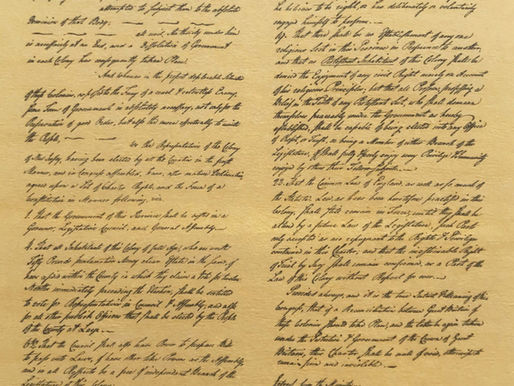 attempted to subject them to the absolute
Dominion of that Body.
at end, No Authority under him
is necessarily at an End, and a Dissolution of Government
in each Colony has consequently taken Place.
And whereas in the present deplorable
of these Colonies, exposed to the Fury of a cruel & relentless Enemy,
some Form of Government is absolutely necessary, not only for the
Preservation of good Order, but also the more effectually to unite
the People,
the Representatives of the Colony
of New Jersey, having been elected by all the Counties in the
and in Congress assembled, have, after mature Deliberations
agreed upon a Set of Charter Rights, and the Form of a
Constitution in Manner following, viz.
1. That the Government of this Province shall be vested in a
Governor, Legislative Council, and General Assembly.
4. That all Inhabitants of this Colony of full Age, who are worth
Fifty Pounds proclamation Money clear Estate in the same, &
have resided within the County in which they claim a Vote for twelve
Months immediately preceding the Election, shall be entitled
to vote for Representatives in Council & Assembly, and also
for all other publick Officers that shall be elected by the People
of the County at Large.
That the Council shall also have Power to prepare Bills
to pass into Laws, & have other like Powers as the Assembly,
and in all Respects be a free & independent Branch of the
Legislature of this Colony
he believes to be right, or has deliberately or voluntarily
engaged himself to perform.
That there shall be no Establishment of any one
religious Sect in this Province in Preference to another,
and that no Protestant Inhabitant of this Colony shall be
denied the Enjoyment of any civil Right merely on Account
of his religious Principles, but that all Persons, professing a
Belief in the Faith of any Protestant Sect, who shall demean
themselves peaceably under the Government as hereby
established, shall be capable of being elected into any Office
of Profit or Trust, or being a Member of either Branch of the
Legislature, & shall fully & freely enjoy every Privilege & Immunity
enjoyed by others their Fellow-Subjects.
22. That the Common Law of England, as well as so much of
the Statute Law, as have been heretofore practised in this
Colony, shall still remain in Force, until they shall be
altered by a future Law of the Legislature, such Parts
only excepted as are repugnant to the Rights & Privileges
contained in this Charter, and that the inestimable Right
of Trial by Jury shall remain confirmed, as a Part of the
Law of this Colony without Repeal for ever.
Provided always, and it is the true Intent & Meaning of this
Congress, that if a Reconciliation between Great Britain &
these Colonies should take Place, and the latter be again taken
under the Protection & Government of the Crown of Great
Britain, this Charter shall be null & void, otherwise to
remain firm and inviolable.